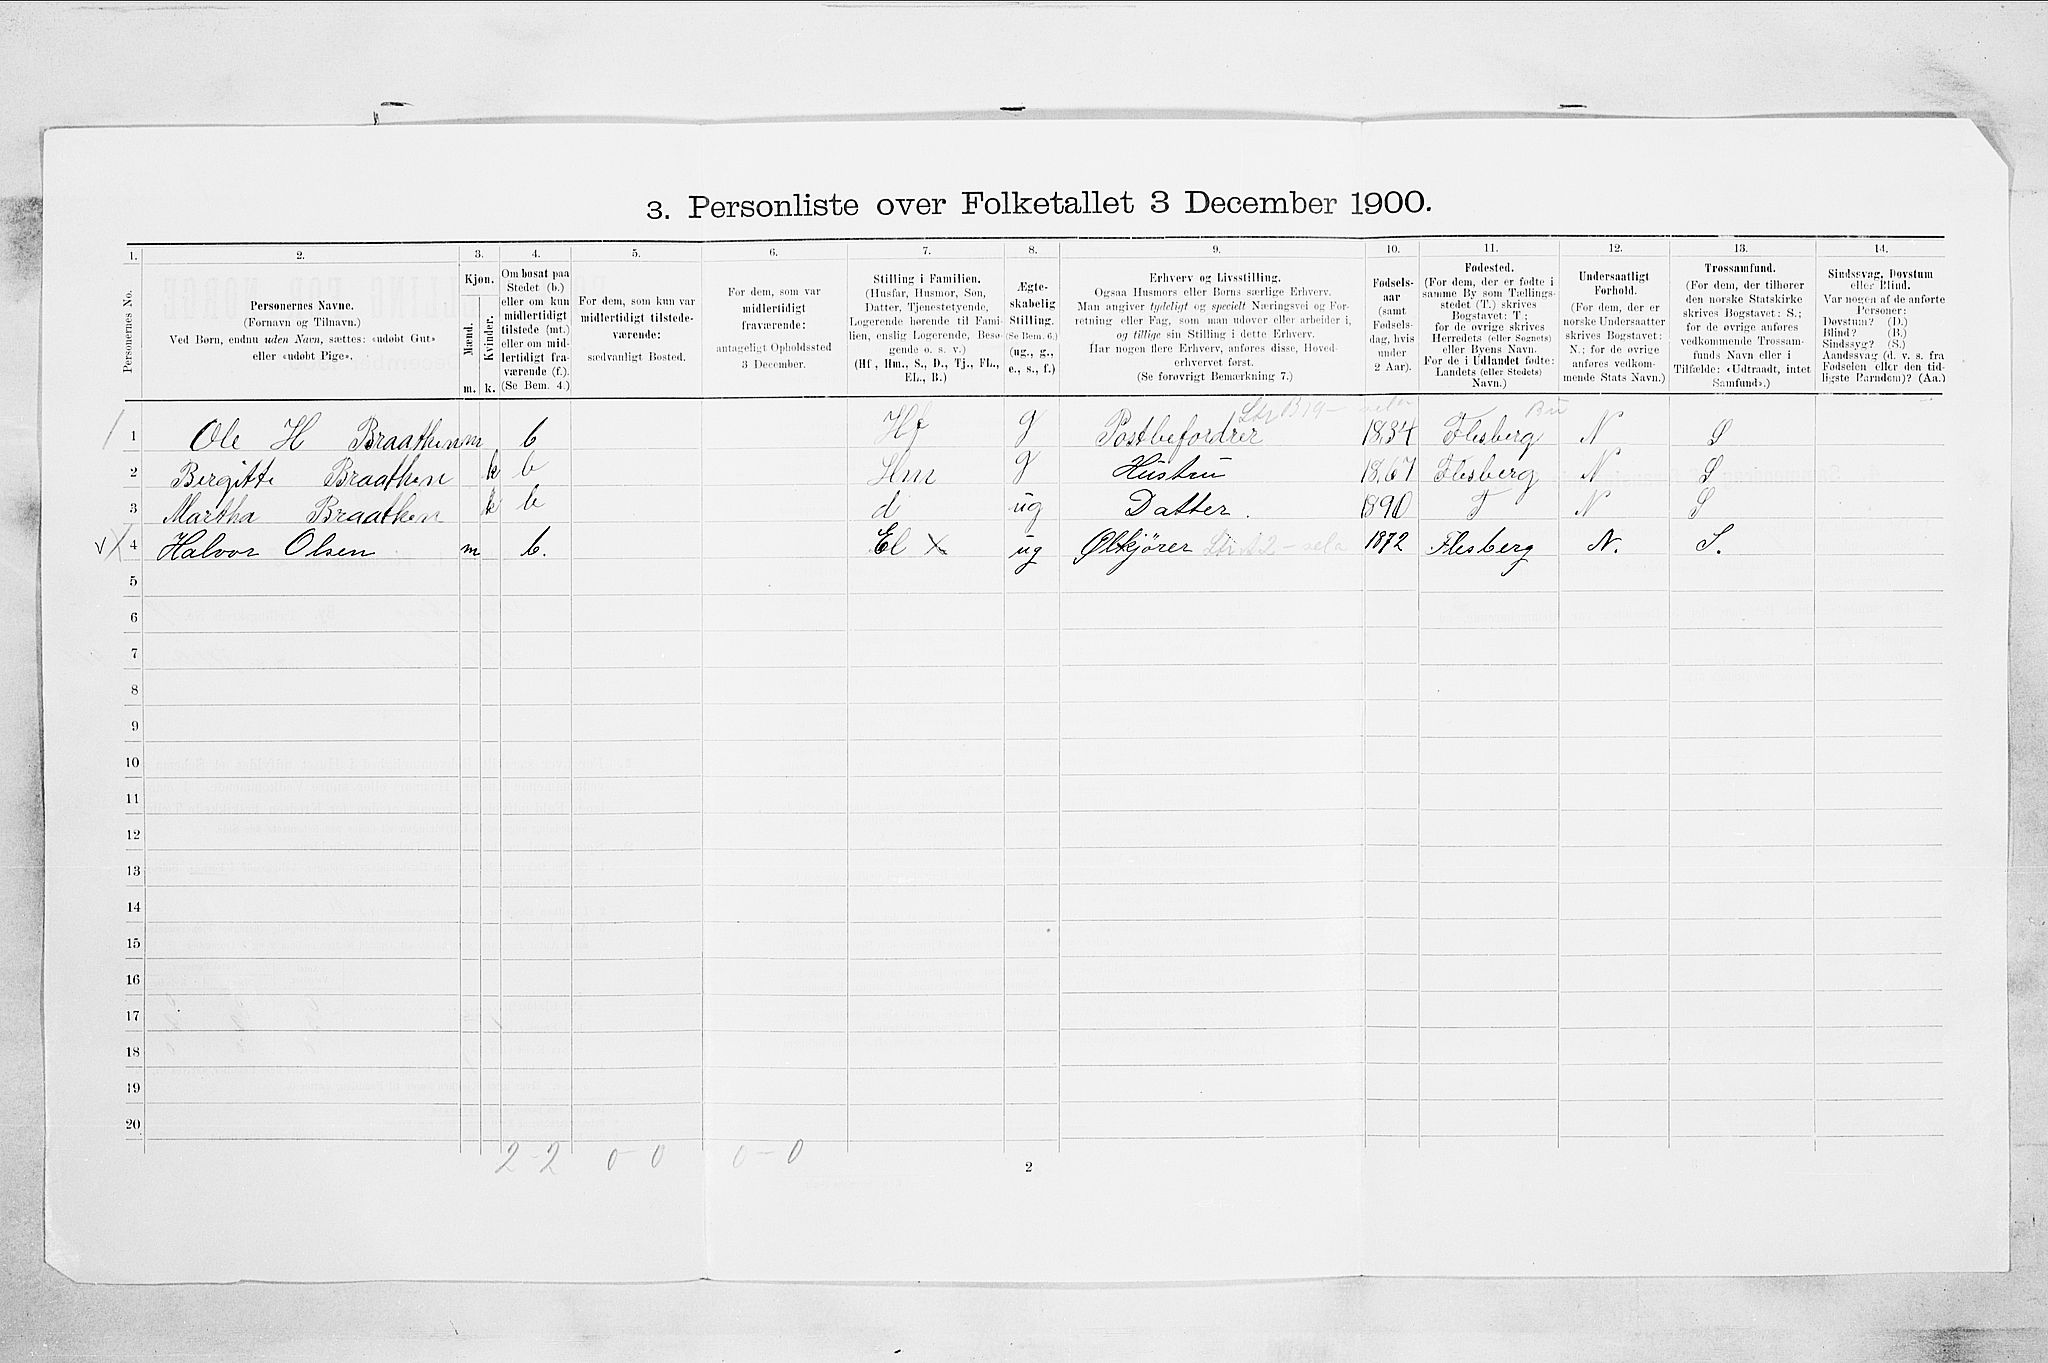 3. Personliste over Folketallet 3 December 1900.
1. 2. 3. 4. 5. 6. 7. 8. 9. 10. 11. 12. 13. 14.
Personernes No.
Personernes Navne.
(Fornavn og Tilnavn.)
Ved Børn, endnu uden Navn, sættes: «udøbt Gut»
eller «udøbt Pige».
Kjøn.
Mænd.
Kvinder.
m. k.
Om bosat paa
Stedet (b.)
eller om kun
midlertidigt
tilstede (mt.)
eller om mid-
lertidigt fra-
værende (f.).
(Se Bem. 4.)
For dem, som kun var
midlertidigt tilstede-
værende:
sædvanligt Bosted.
For dem, som var
midlertidigt
fraværende:
antageligt Opholdssted
3 December.
Stilling i Familien.
(Husfar, Husmor, Søn,
Datter, Tjenestetyende,
Logerende hørende til Fami-
lien, enslig Logerende, Besø-
gende o. s. v.)
(Hf., Hm., S., D., Tj., FL.,
EL., B.)
Ægte-
skabelig
Stilling.
(Se Bem. 6.)
(ug., g.,
e., s., f.)
Erhverv og Livsstilling.
Ogsaa Husmors eller Børns særlige Erhverv.
Man angiver tydeligt og specielt Næringsvei og For-
retning eller Fag, som man udøver eller arbeider i,
og tillige sin Stilling i dette Erhverv.
Har nogen flere Erhverv, anføres disse, Hoved-
erhvervet først.
(Se forøvrigt Bemærkning 7.)
Fødsels-
aar
(samt
Fødsels-
dag, hvis
under
2 Aar).
Fødested.
(For dem, der er fødte i
samme By som Tællings-
stedet (T.) skrives
Bogstavet: T;
for de øvrige skrives
Herredets (eller Sognets)
eller Byens Navn.
For de i Udlandet fødte:
Landets (eller Stedets)
Navn.)
Undersaatligt
Forhold.
(For dem, der er
norske Undersaatter
skrives Bogstavet:
N.; for de øvrige
anføres vedkom-
mende Stats Navn.)
Trossamfund.
(For dem, der tilhører
den norske Statskirke
skrives Bogstavet: S.;
for de øvrige anføres
vedkommende Trossam-
funds Navn eller i
Tilfælde: «Udtraadt, intet
Samfund».)
Sindssvag, Døvstum
eller Blind.
Var nogen af de anførte
Personer:
Døvstum? (D.)
Blind? (B.)
Sindssyg? (S.)
Aandssvag (d. v. s. fra
Fødselen eller den tid-
ligste Barndom)? (Aa.)
1 Ole H Braathen m b Hf g Postbefordrer 1834 Flesberg N S
2 Bergitte Braathen k b Hm g Hustru 1867 Flesberg N S
3 Martha Braathen k b d ug Datter. 1890 T N S
4 Halvor Olsen m b. El x ug Ølkjører 1872 Flesberg N. S.
5
6
7
8
9
10
11
12
13
14
15
16
17
18
19
20
2-2 0-0 0-0
2